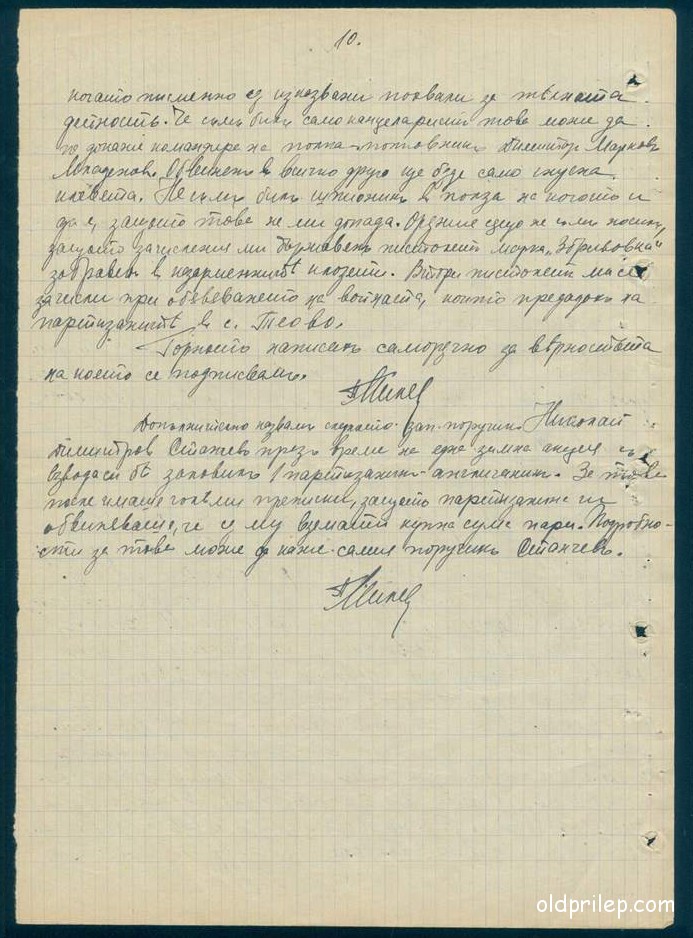 10.
когато писменно са изказвани похвали за тѣхната
дейность. Че съмъ билъ само канцеларистъ това може да
командира на полка полковникъ Димитър Марковъ
Младеновъ. Обвиненъ в всичко друго ще бъде само
клевета. Не съмъ билъ шпионинъ в полза на когото и
да е, защото това не ми допада. Оръжие също не съмъ носилъ,
защото зачисления ми държавенъ пистолетъ марка
забравенъ в клозети. Втори пистолетъ ми се
зачисли при обявяването на войната, който предадохъ на
партизанитѣ в с. Теово.
Горното написахъ саморъчно за вѣрностьта
на което се подписвамъ.
Допълнително казвамъ следното: зап. поручик Николай
Димитров Станчев презъ време на една зимна акция с
взвода си бѣ заловилъ 1 партизанинъ-англичанин. За това
после имаше голѣми преписки, защото партизанина го
обвиняваше, че са му взематъ купна сума пари. Подробно-
сти за това може да каже самия поручикъ Станчевъ.
oldprilep.com